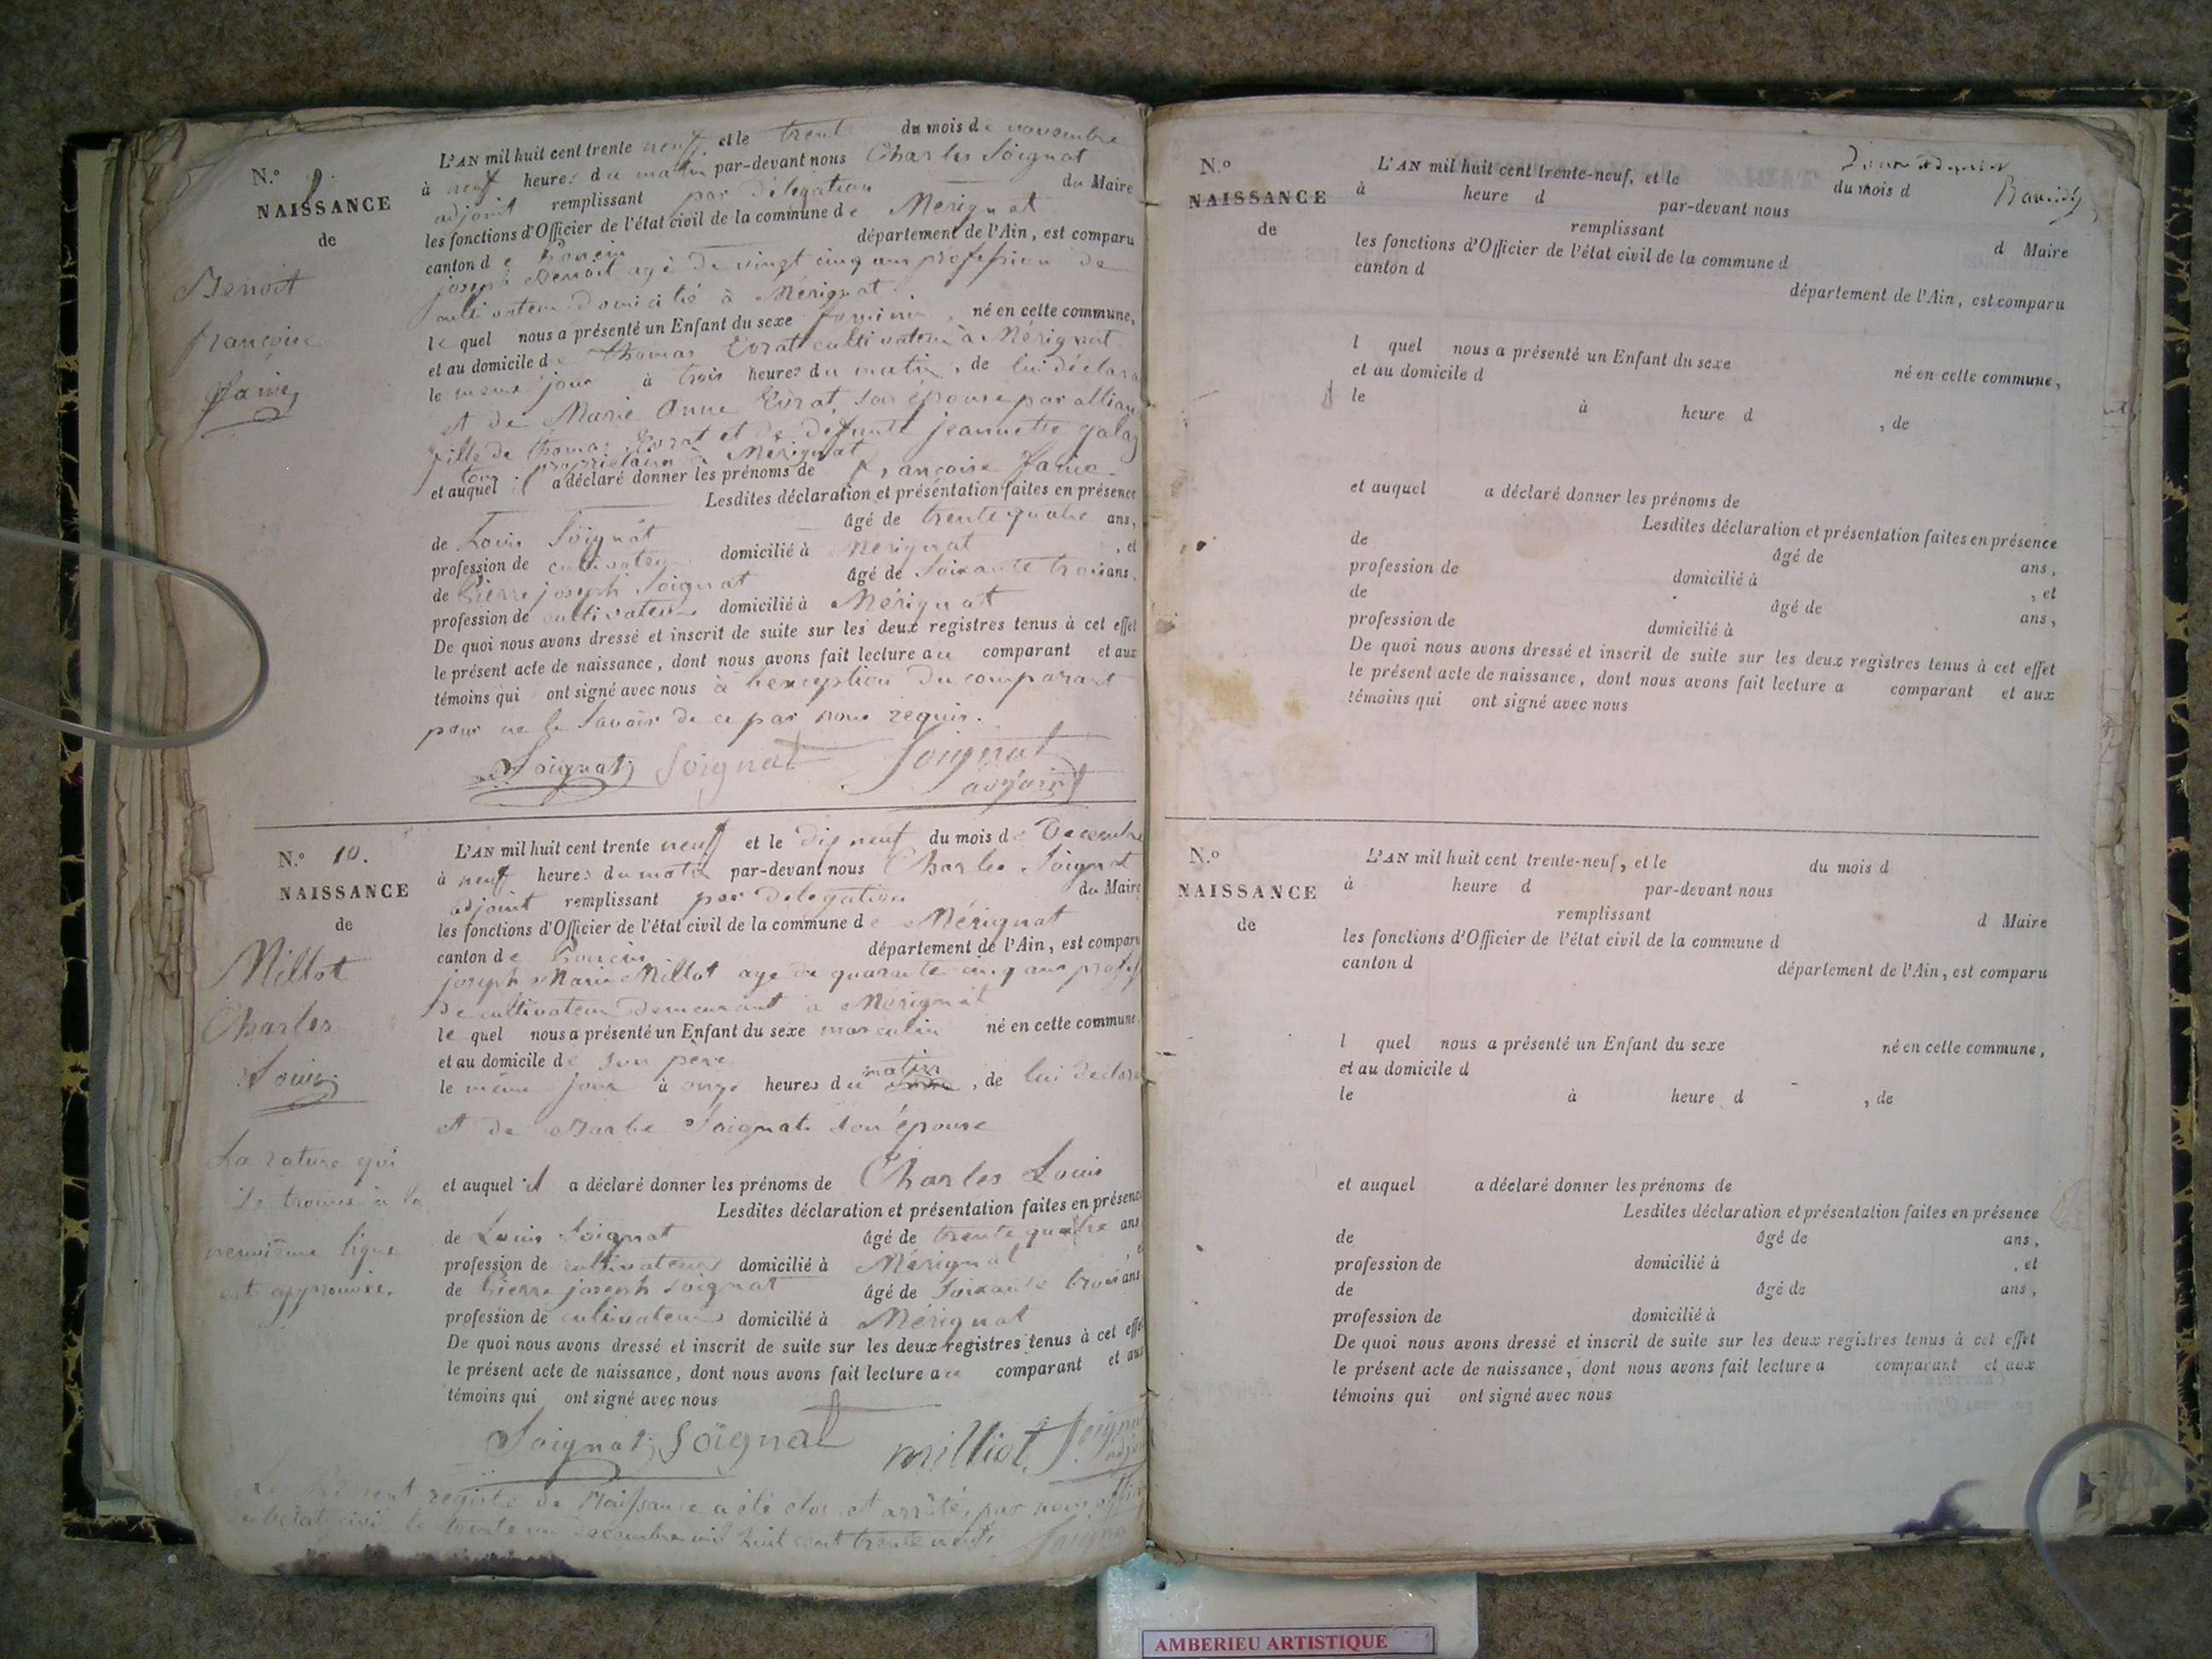 N.º 9.
NAISSANCE
de
Benoit
françoise
fanie
L'AN mil huit cent trente neuf et le trente du mois de novembre
à neuf heures du matin par-devant nous Charles Soignat
adjoint remplissant par délégation du Maire
les fonctions d'Officier de l'état civil de la commune de Mérignat
canton de Poncin département de l'Ain, est comparu
joseph Benoit agé de vingt cinq ans profession de
cultivateur domicilié à Mérignat
le quel nous a présenté un Enfant du sexe feminin, né en cette commune,
et au domicile de thomas Evrat cultivateur à Mérignat
le meme jour à trois heures du matin, de lui déclara
et de Marie Anne Evrat, son épouse par allian
fille de thomas Evrat et de défunte jeannette
propriétaire à Mérignat
et auquel il a déclaré donner les prénoms de françoise fanie
Lesdites déclaration et présentation faites en présence
de Louis Soignat âgé de trente quatre ans,
profession de cultivateur domicilié à Mérignat, et
de Pierre joseph Soignat âgé de Soixante trois ans,
profession de cultivateur domicilié à Mérignat
De quoi nous avons dressé et inscrit de suite sur les deux registres tenus à cet effet
le présent acte de naissance, dont nous avons fait lecture au comparant et aux
témoins qui ont signé avec nous à l'exception du comparant
pour ne le Savoir de ce par nous requis.
Soignat Soignat Soignat
adjoint
N.º 10.
NAISSANCE
de
Millot
Charles
Louis
La rature qui
se trouve à la
neuvième ligne
est approuvée.
L'AN mil huit cent trente neuf et le dix neuf du mois de Decembre
à neuf heures du matin par-devant nous Charles Soignat
adjoint remplissant par délégation du Maire
les fonctions d'Officier de l'état civil de la commune de Mérignat
canton de Poncin département de l'Ain, est comparu
joseph Marie Millot agé de quarante cinq ans profess
De cultivateur demeurant à Mérignat
le quel nous a présenté un Enfant du sexe masculin né en cette commune,
et au domicile de son père
le même jour à onze heures du matin, de lui declara
et de Barbe Soignat son épouse
et auquel il a déclaré donner les prénoms de Charles Louis
Lesdites déclaration et présentation faites en présence
de Louis Soignat âgé de trente quatre ans
profession de cultivateur domicilié à Mérignat, et
de Pierre joseph Soignat âgé de Soixante trois ans
profession de cultivateur domicilié à Mérignat
De quoi nous avons dressé et inscrit de suite sur les deux registres tenus à cet effet
le présent acte de naissance, dont nous avons fait lecture au comparant et aux
témoins qui ont signé avec nous
Soignat Soignat milliot Soignat
Le Présent registre de Naissance a été clos et arrêté, par nous
de l'état civil le trente un Decembre mil huit cent trente neuf. Soignat
N.º
NAISSANCE
de
L'AN mil huit cent trente-neuf, et le du mois d
à heure d par-devant nous
remplissant d Maire
les fonctions d'Officier de l'état civil de la commune d
canton d département de l'Ain, est comparu
l quel nous a présenté un Enfant du sexe né en cette commune,
et au domicile d
le à heure d , de
et auquel a déclaré donner les prénoms de
Lesdites déclaration et présentation faites en présence
de âgé de ans,
profession de domicilié à , et
de âgé de ans,
profession de domicilié à
De quoi nous avons dressé et inscrit de suite sur les deux registres tenus à cet effet
le présent acte de naissance, dont nous avons fait lecture a comparant et aux
témoins qui ont signé avec nous
N.º
NAISSANCE
de
L'AN mil huit cent trente-neuf, et le du mois d
à heure d par-devant nous
remplissant d Maire
les fonctions d'Officier de l'état civil de la commune d
canton d département de l'Ain, est comparu
l quel nous a présenté un Enfant du sexe né en cette commune,
et au domicile d
le à heure d , de
et auquel a déclaré donner les prénoms de
Lesdites déclaration et présentation faites en présence
de âgé de ans,
profession de domicilié à , et
de âgé de ans,
profession de domicilié à
De quoi nous avons dressé et inscrit de suite sur les deux registres tenus à cet effet
le présent acte de naissance, dont nous avons fait lecture a comparant et aux
témoins qui ont signé avec nous
AMBERIEU ARTISTIQUE